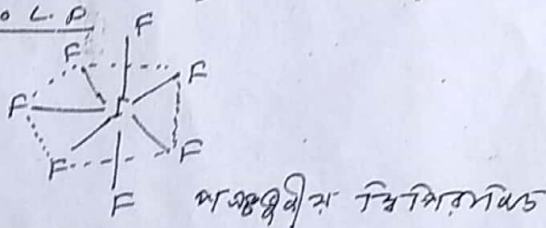 0 L.P
F
F
F
F
I
F
F
F
পঞ্চভুজীয় দ্বিপিরামিড